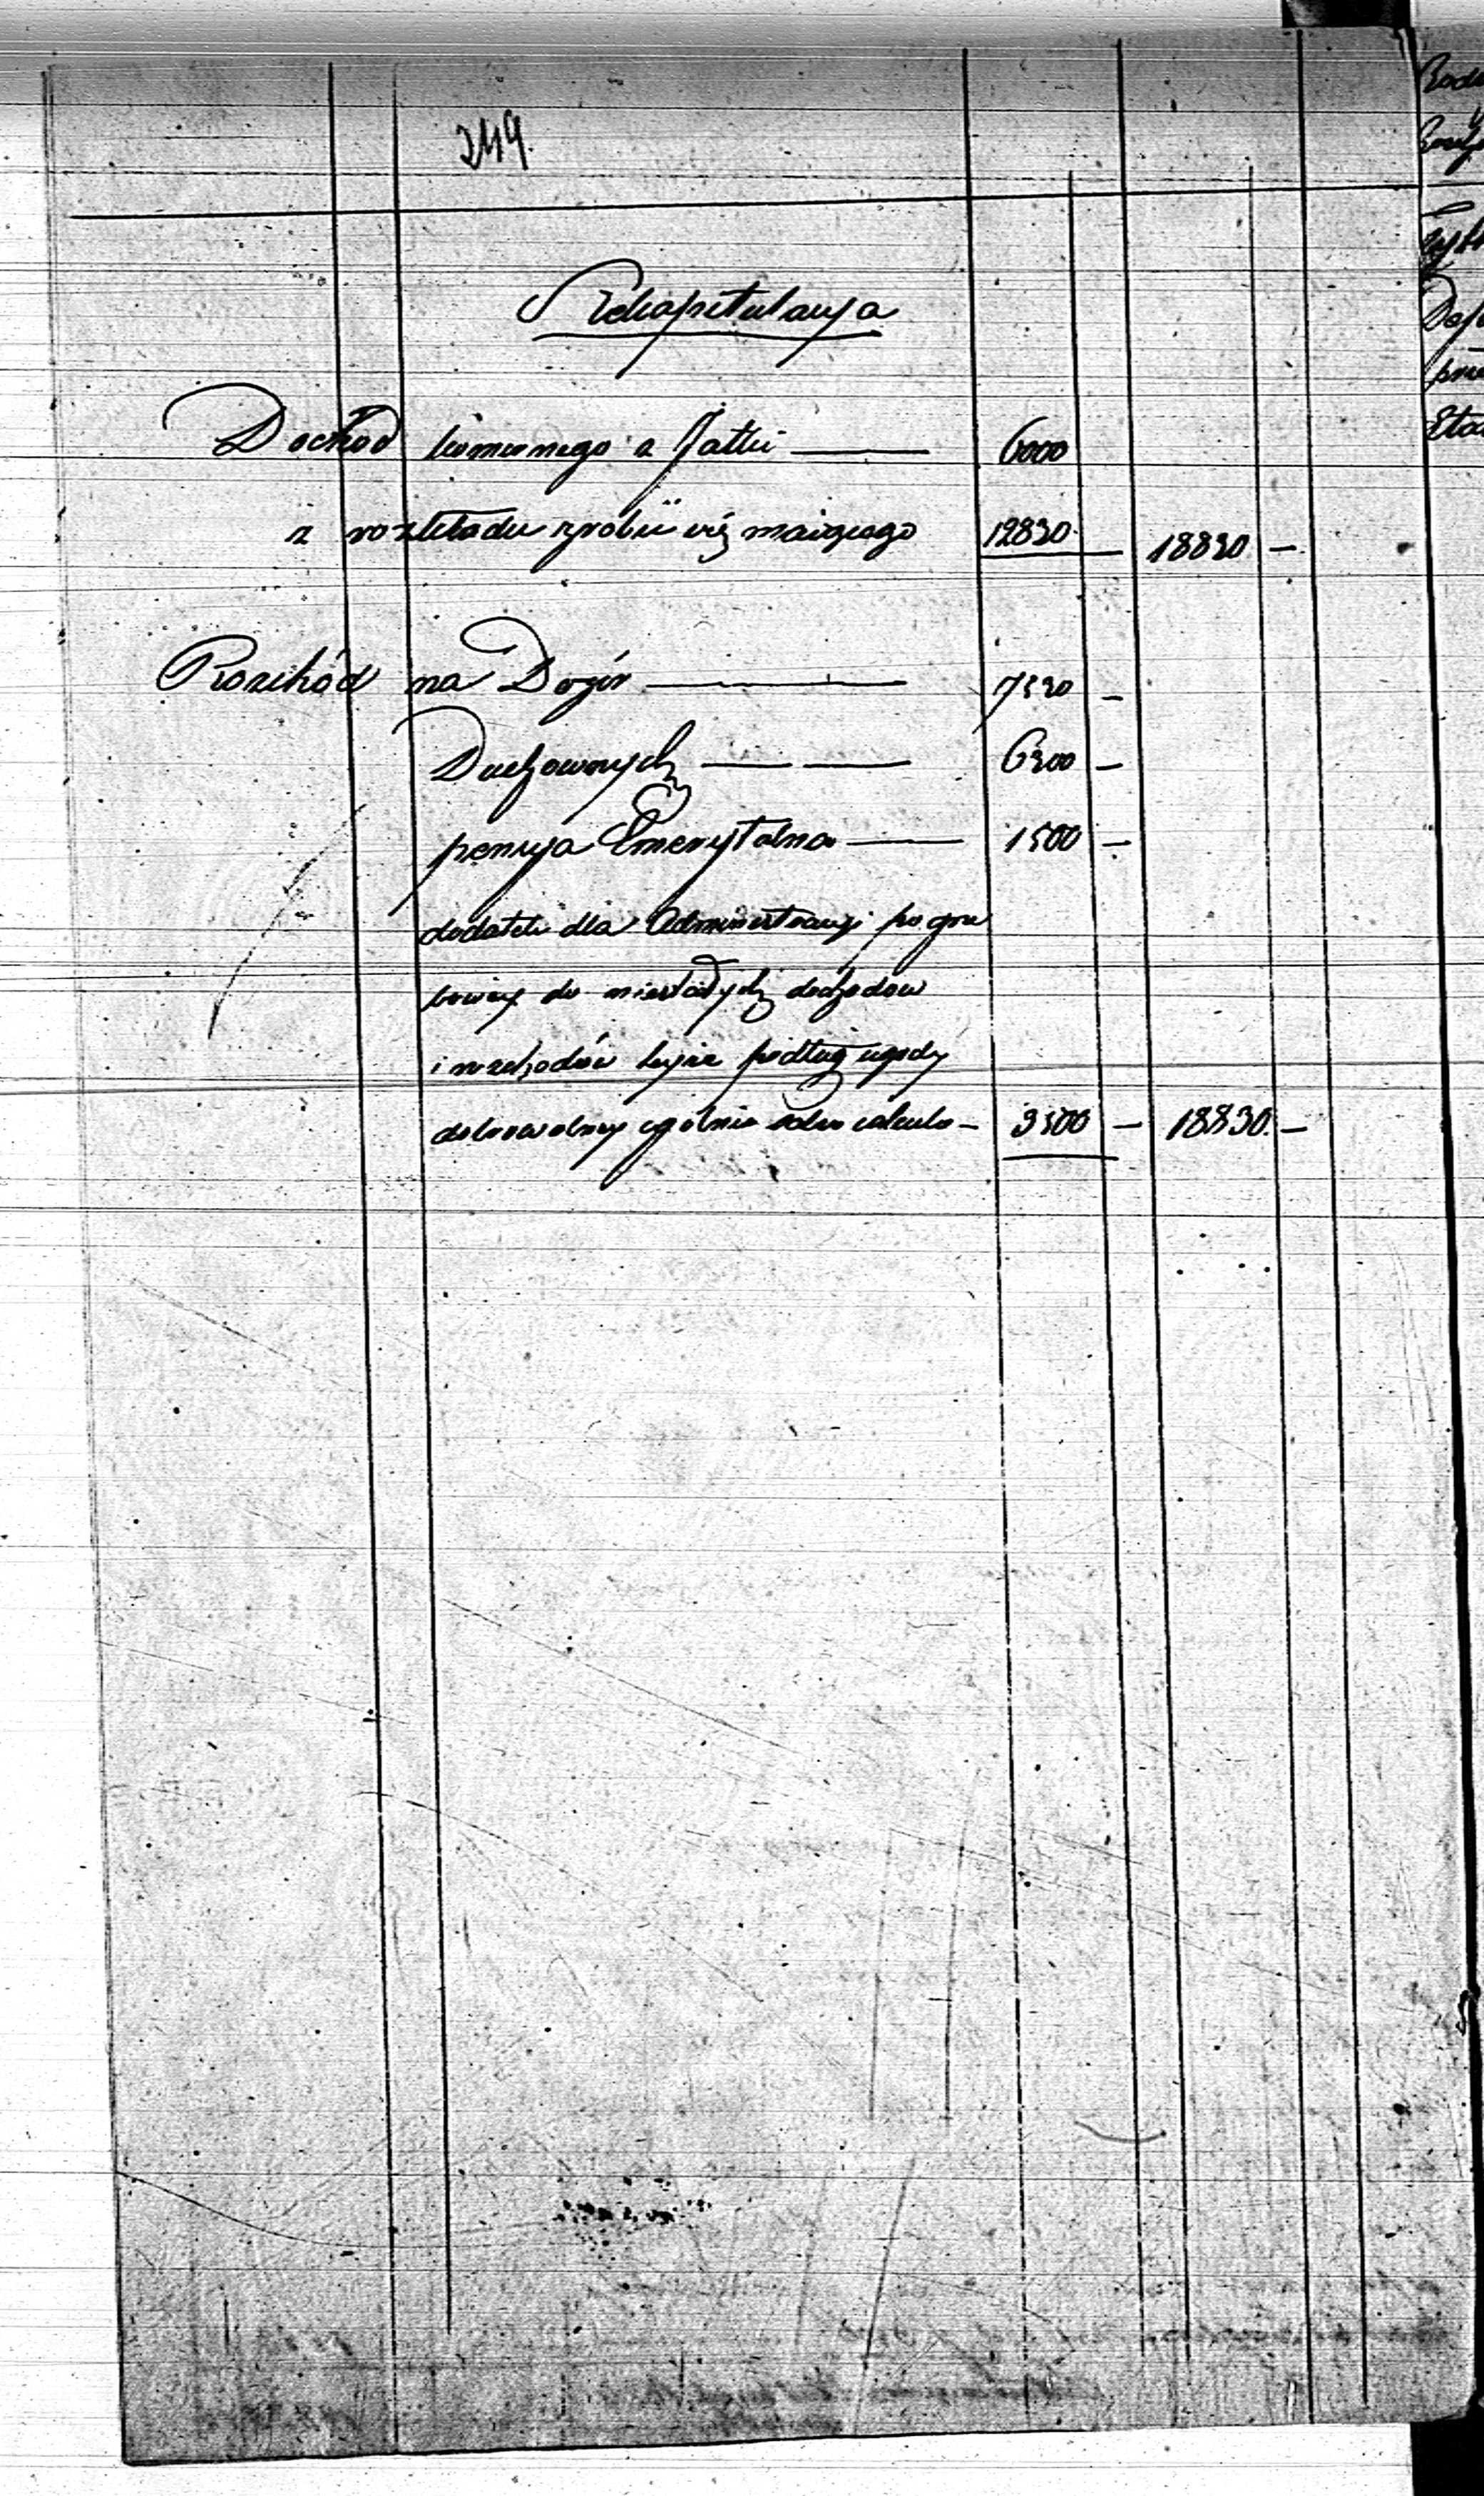 249.
Rekapitulacya
Dochód komornego a Jatki — 6000
z rozkładu zrobić się maiącego 12830 — 18830 —
Rozchód na Dozór — 7530 —
Duchownych — 6300 —
pensya Emerytalna — 1500 —
dodatek dla Administracyi po gro
bowey do niestałych dochodów
i rozchodów podług ugody
dobrowolney ogólnie salvo calculo — 3500 — 18830. —